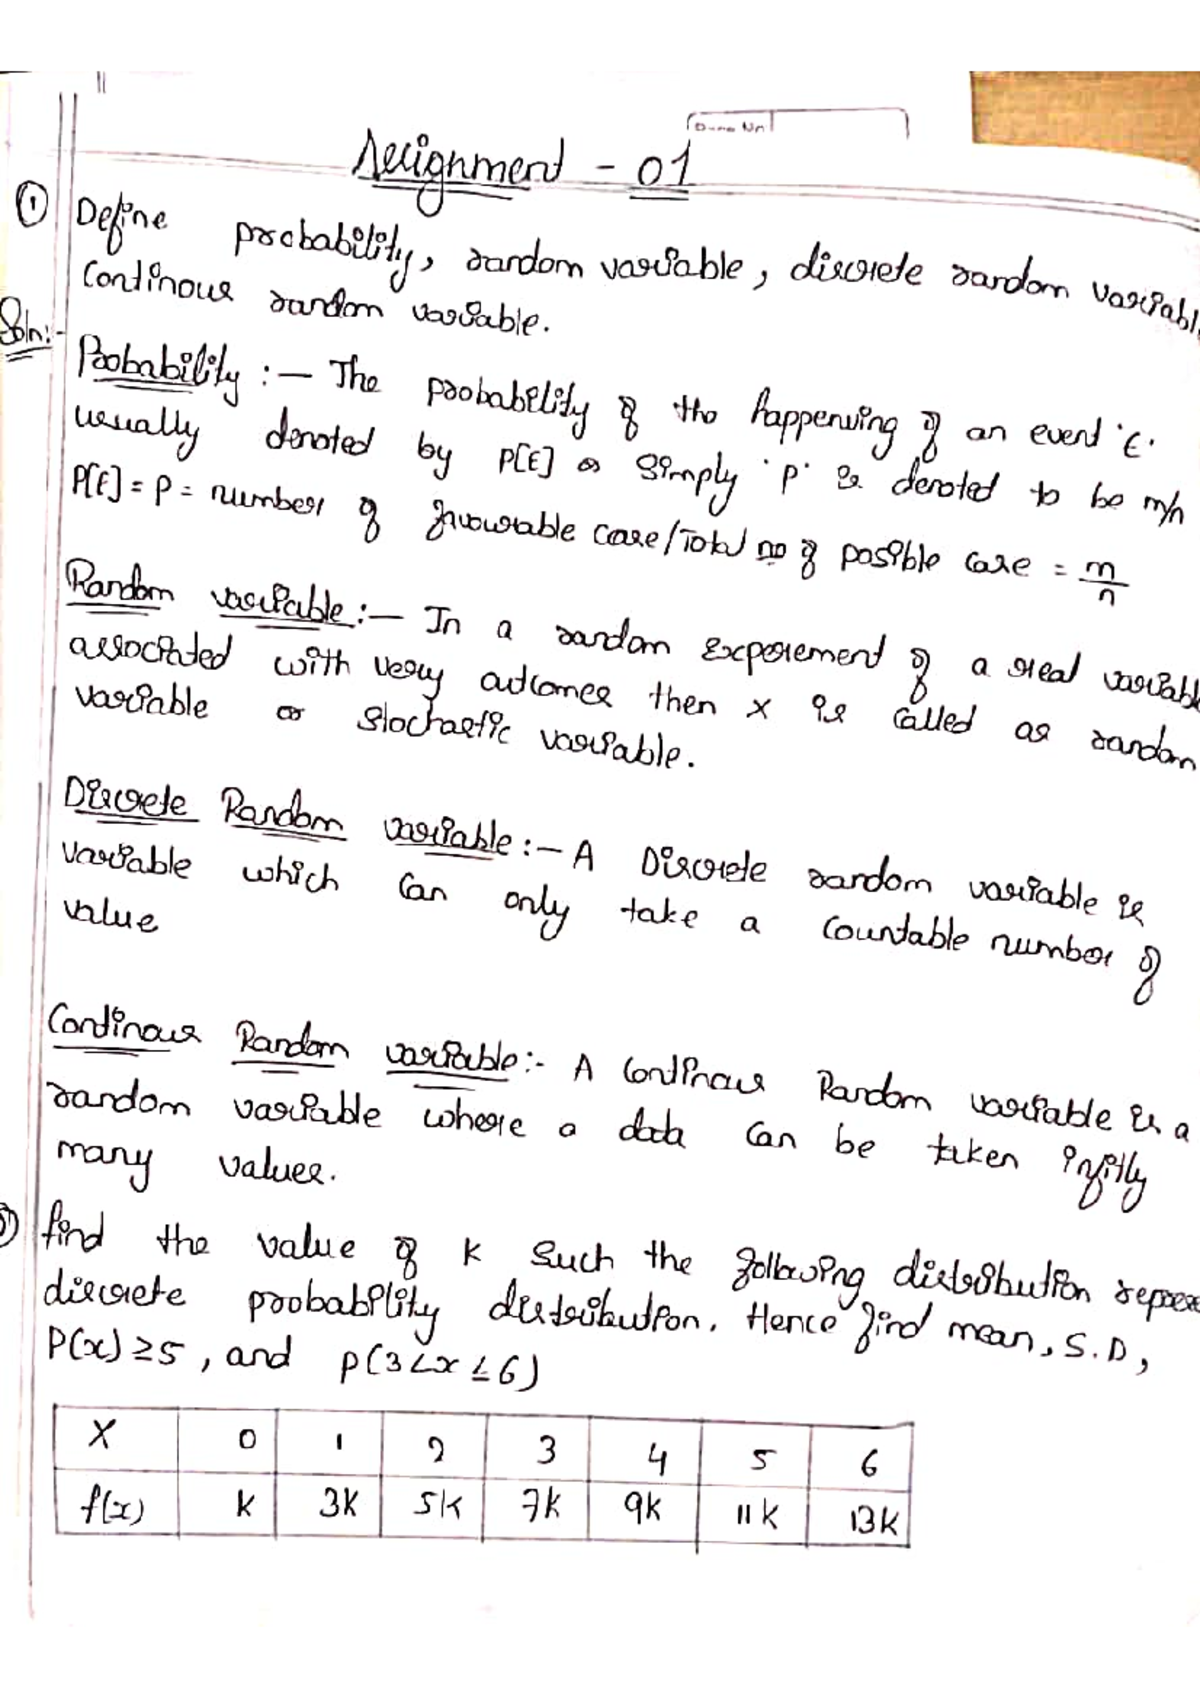 Assignment - 01
① Define probability, random variable, discrete random variabl
Continous random variable.
Soln:-
Probability :— The probability of the happening of an event 'E'
usually denoted by P[E] or Simply 'P' is denoted to be m/n
P[E] = P = number of favourable case/Total no of posible case = m/n
Random variable:— In a random experement of a real variable
associated with very outcomes then X is called as random
variable or stochastic variable.
Discrete Random variable:— A Discrete random variable is
variable which can only take a countable number of
value
Continous Random variable:- A Continous Random variable is a
random variable where a data can be taken infitly
many values.
find the value of K Such the following distribution repres
discrete probability distribution. Hence find mean, S.D,
P(x) ≥5, and P(3<x≤6)
X 0 1 2 3 4 5 6
f(x) K 3K 5K 7K 9K 11K 13K